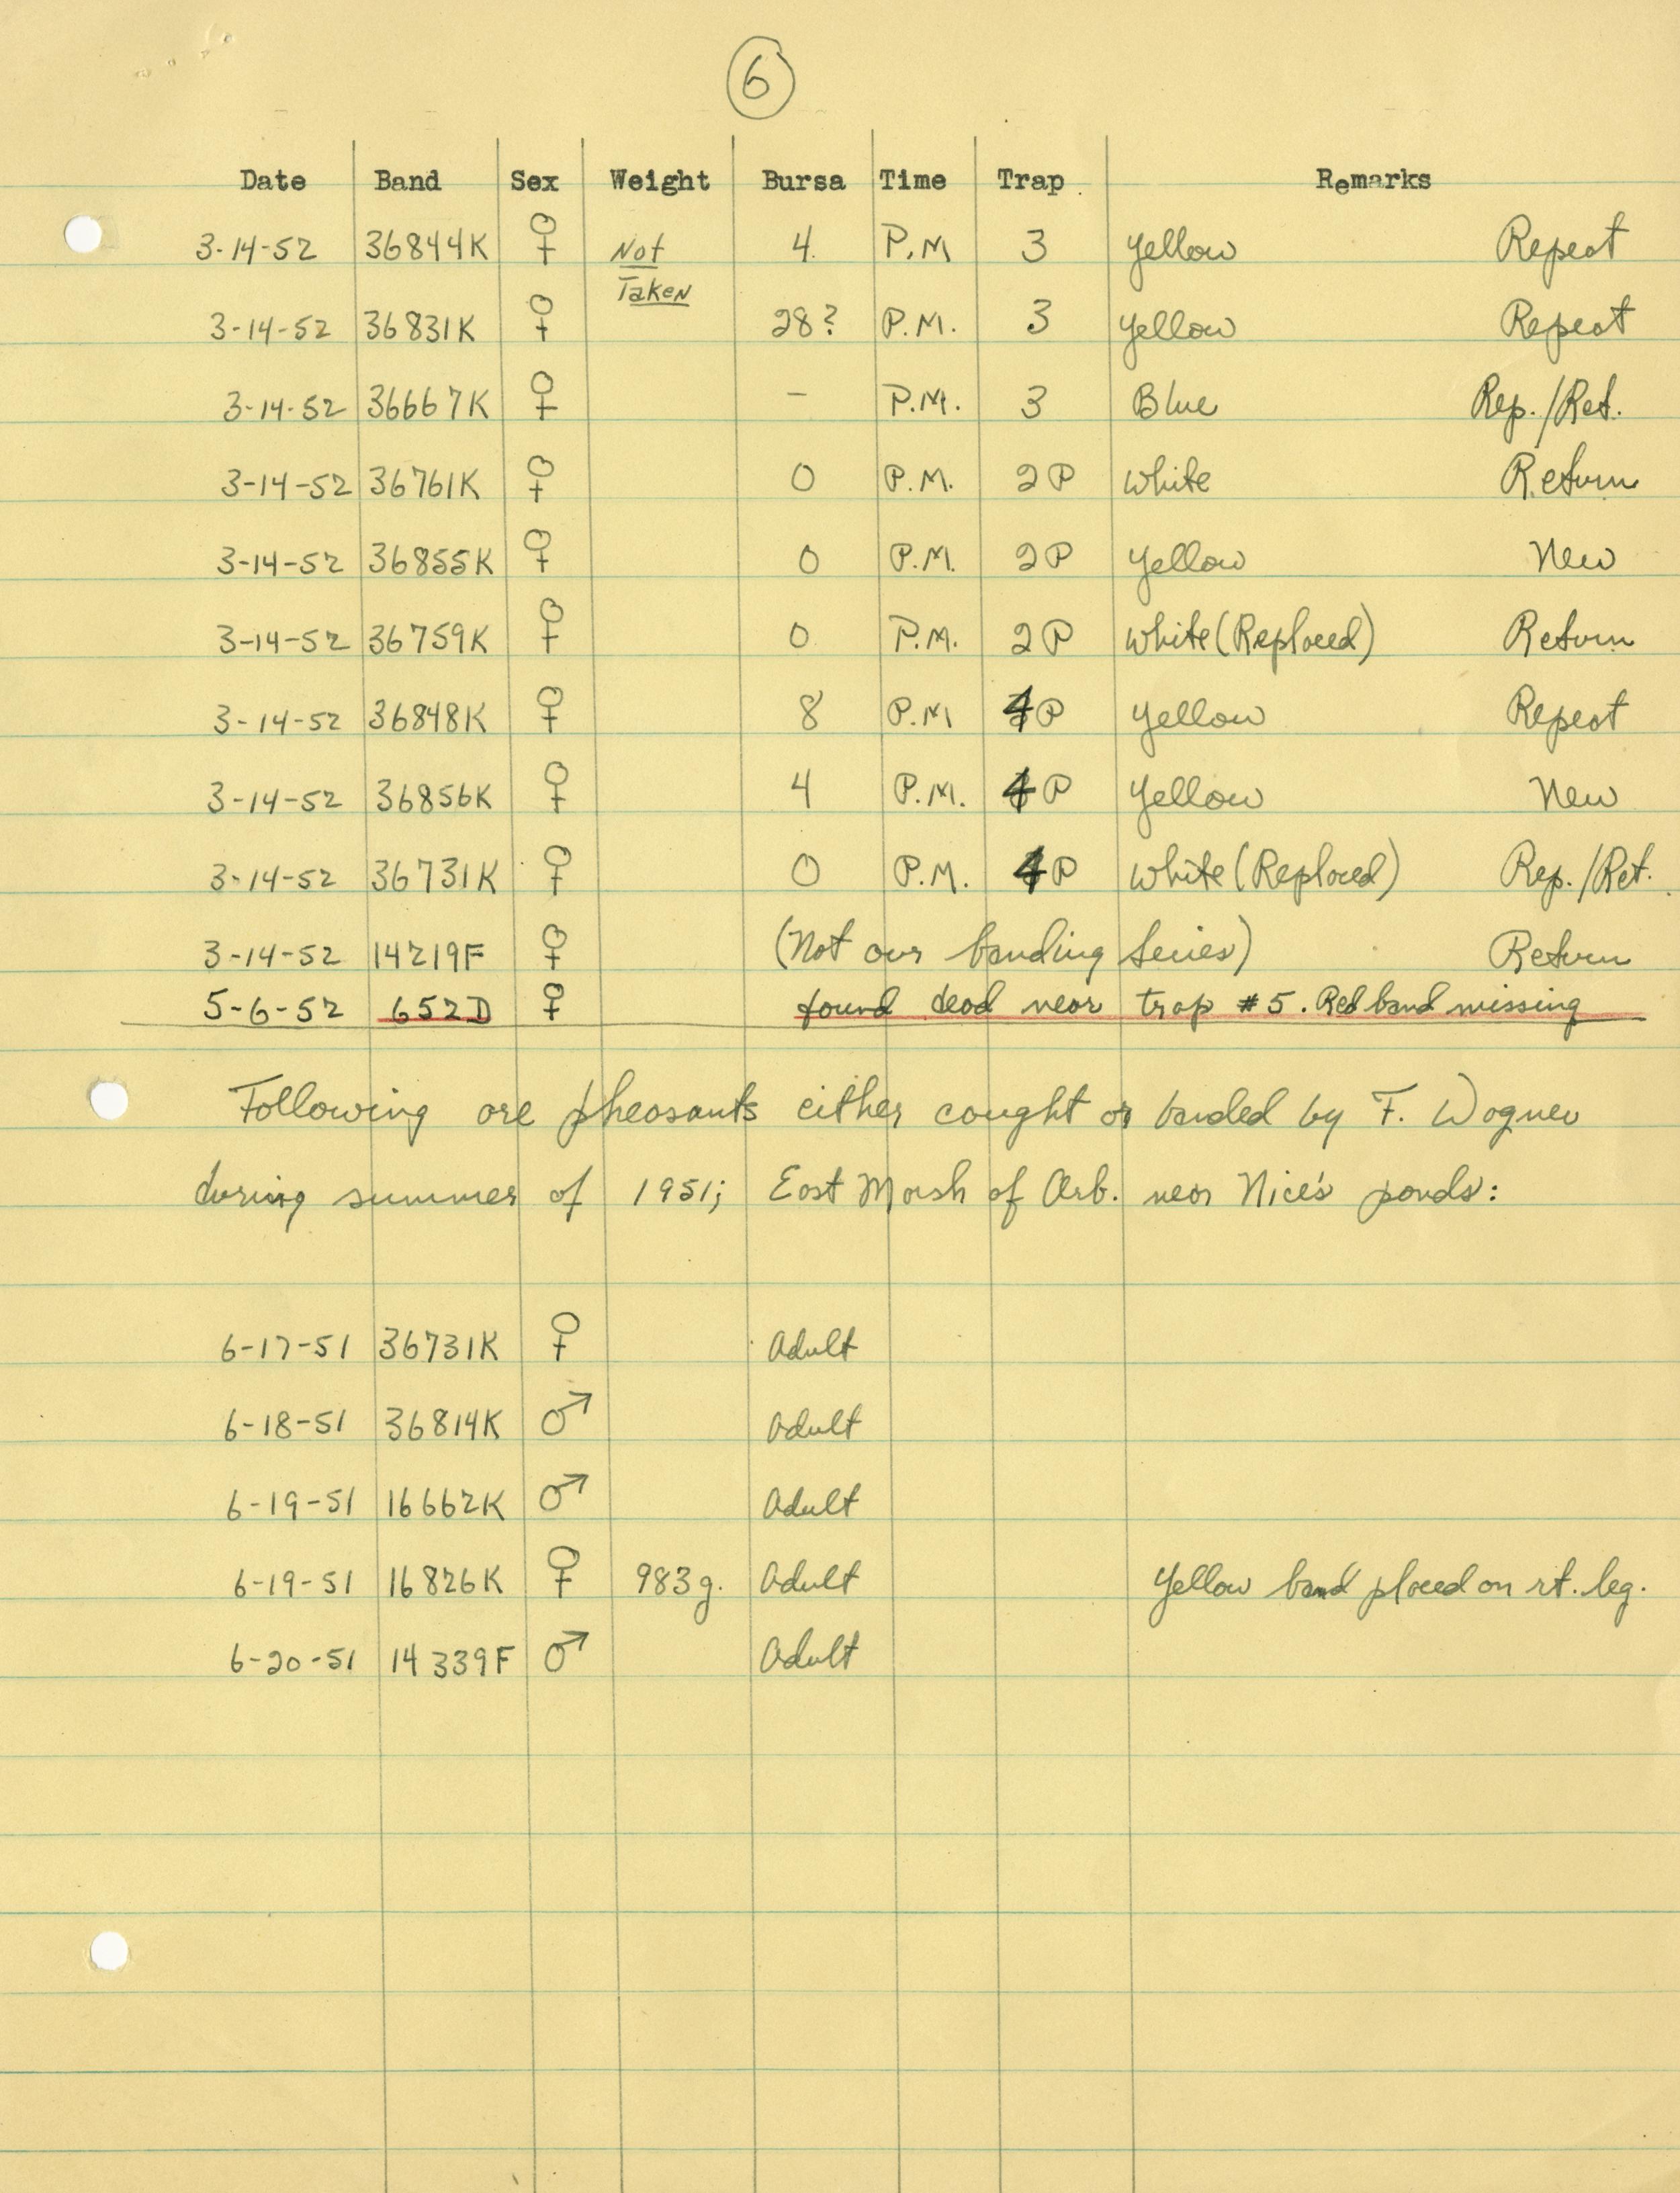 6
Date Band Sex Weight Bursa Time Trap Remarks
3-14-52 36844K ♀ Not Taken 4 P.M 3 Yellow Repeat
3-14-52 36831K ♀ 28? P.M. 3 Yellow Repeat
3-14-52 36667K ♀ - P.M. 3 Blue Rep./Ret.
3-14-52 36761K ♀ 0 P.M. 2P White Return
3-14-52 36855K ♀ 0 P.M. 2P Yellow New
3-14-52 36759K ♀ 0 P.M. 2P White (Replaced) Return
3-14-52 36848K ♀ 8 P.M 4P Yellow Repeat
3-14-52 36856K ♀ 4 P.M. 4P Yellow New
3-14-52 36731K ♀ 0 P.M. 4P White (Replaced) Rep./Ret.
3-14-52 14219F ♀ (Not our banding series) Return
5-6-52 652D ♀ found dead near trap #5. Red band missing
Following are pheasants either caught or banded by F. Wagner
during summer of 1951; East Marsh of Arb. near Nice's ponds:
6-17-51 36731K ♀ Adult
6-18-51 36814K ♂ Adult
6-19-51 16662K ♂ Adult
6-19-51 16826K ♀ 983g. Adult Yellow band placed on rt. leg.
6-20-51 14339F ♂ Adult